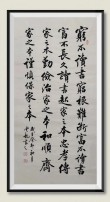 窮不讀書窮根難斷富不讀書
富不長久讀書起家之本忠孝傳
家之本勤儉治家之本和順齊
家之本謹慎保家之本